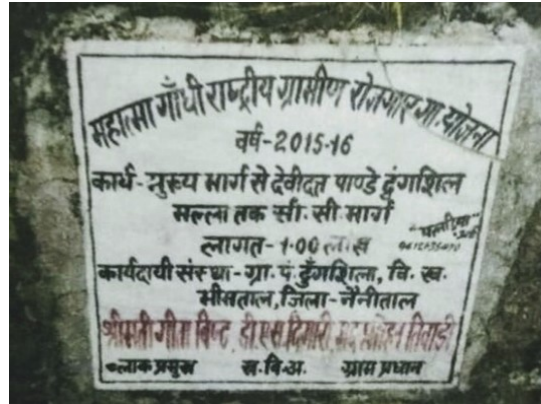 महात्मा गाँधी राष्ट्रीय ग्रामीण रोजगार गा. योजना
वर्ष-2015-16
कार्य-मुख्य मार्ग से देवीदत्त पाण्डे दुंगशिल
मल्ला तक सी.सी मार्ग
लागत-1.00 लाख
कार्यदायी संस्था-ग्रा.पं. दुँगशिला, वि. ख.
भीमताल, जिला-नैनीताल
श्रीमती गीता बिष्ट डी.एस दिगारी मदन मोहन तिवाडी
ब्लाक प्रमुख ख.वि.अ. ग्राम प्रधान